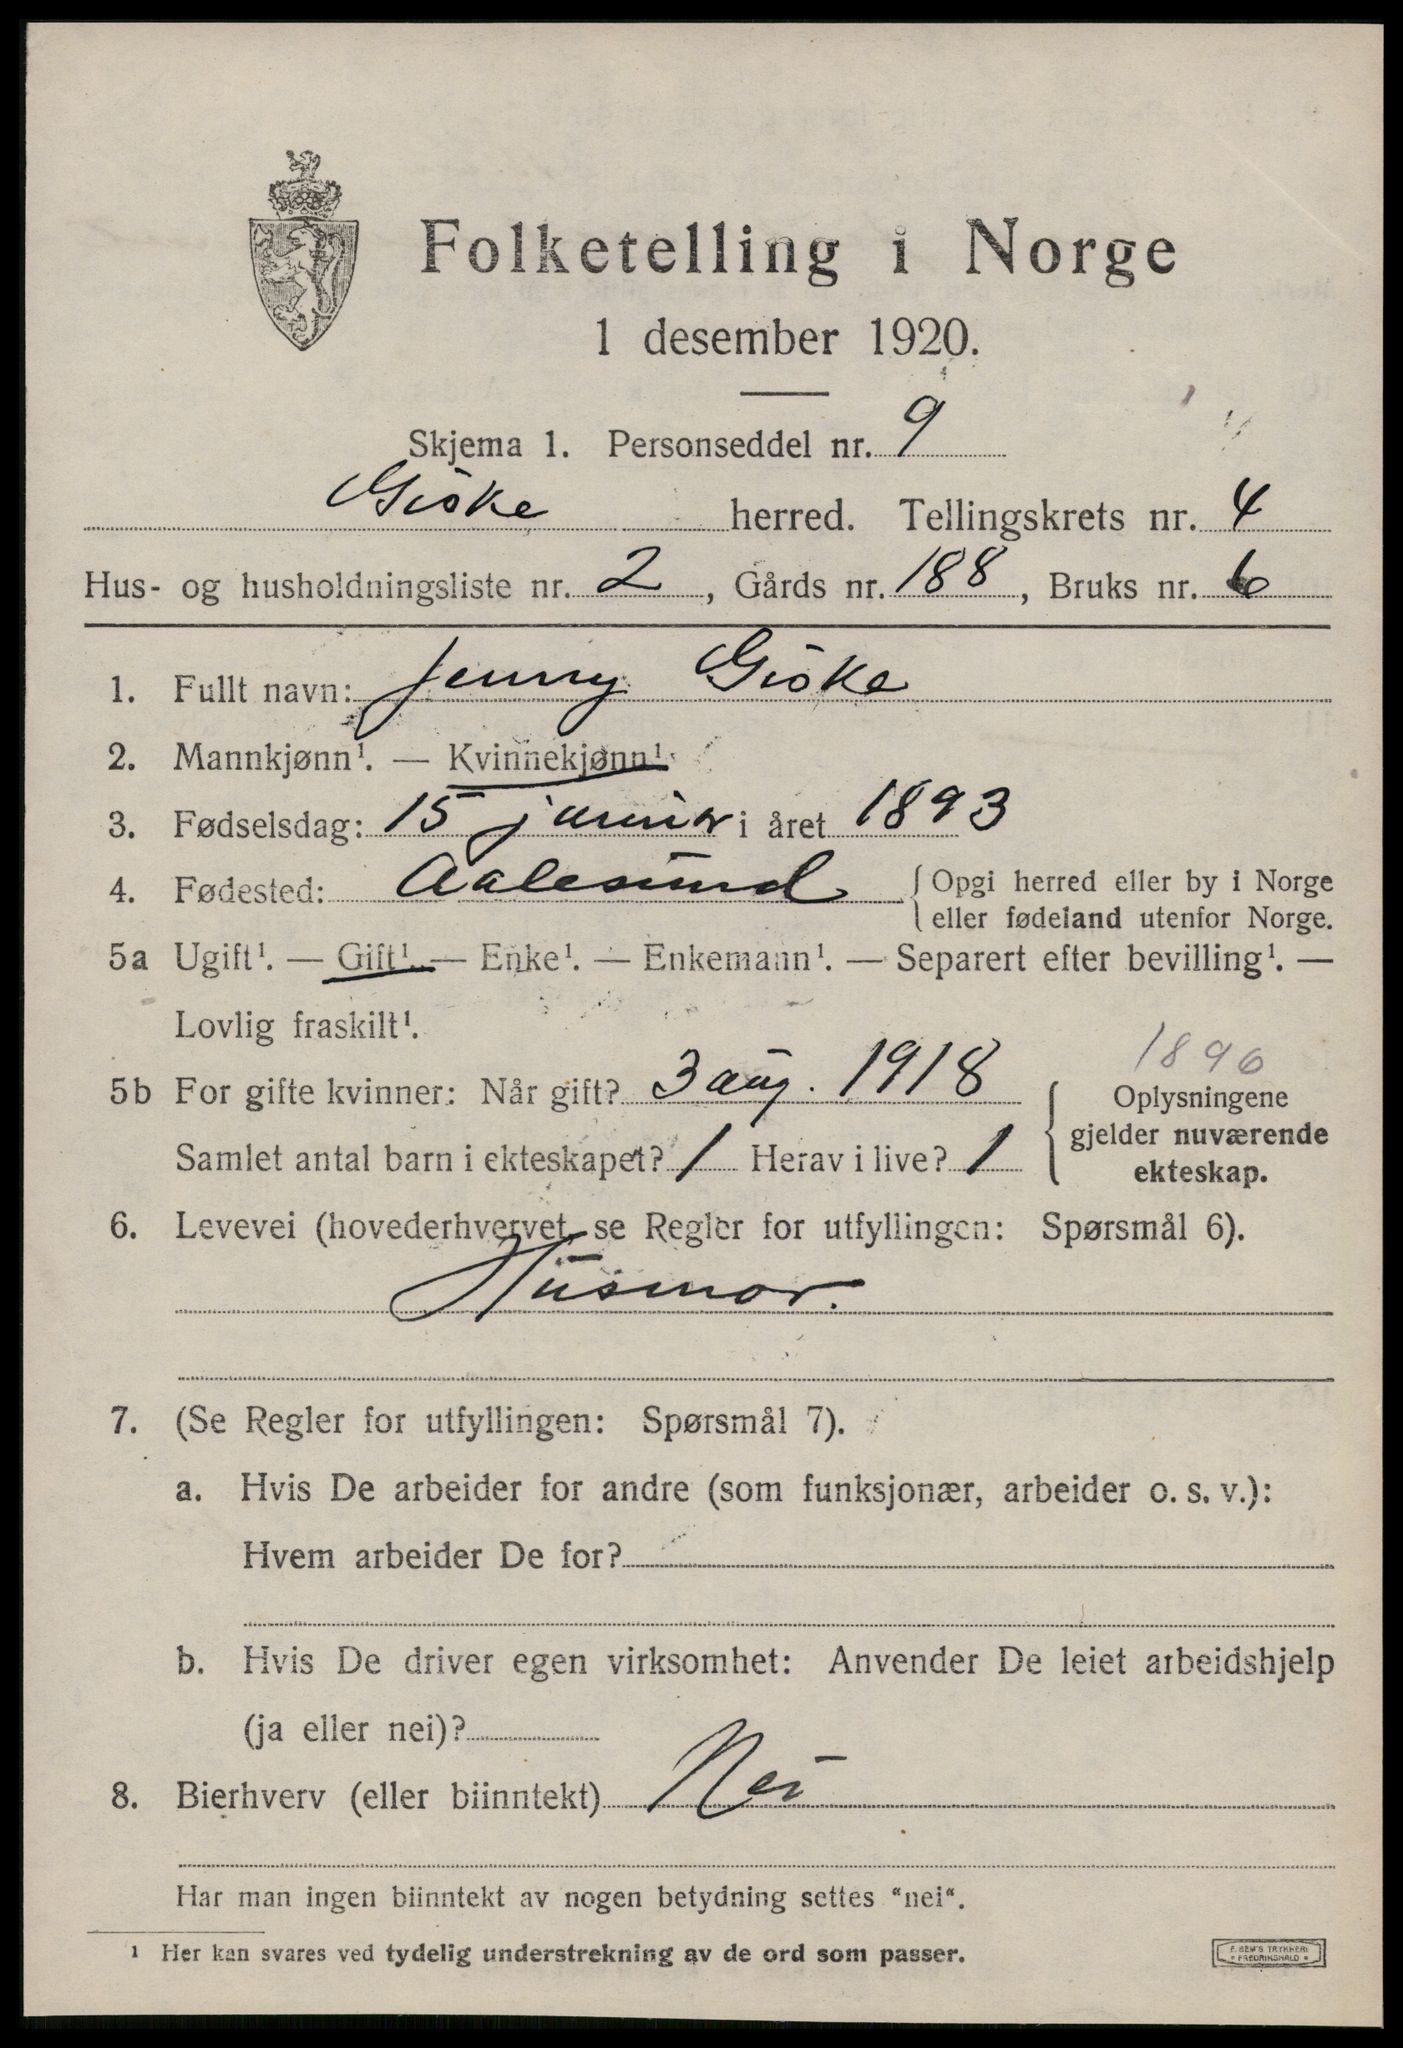 Folketelling i Norge
1 desember 1920.
Skjema 1. Personseddel nr. 9
Giske herred. Tellingskrets nr. 4
Hus- og husholdningsliste nr. 2, Gårds nr. 188, Bruks nr. 6
1. Fullt navn: Jenny Giske
2. Mannkjønn¹. — Kvinnekjønn¹.
3. Fødselsdag: 15 januar i året 1893
4. Fødested: Aalesund { Opgi herred eller by i Norge
eller fødeland utenfor Norge.
5a Ugift¹. — Gift¹. — Enke¹. — Enkemann¹. — Separert efter bevilling¹. —
Lovlig fraskilt¹.
1896
5b For gifte kvinner: Når gift? 3 aug. 1918 { Oplysningene
gjelder nuværende
Samlet antal barn i ekteskapet? 1 Herav i live? 1 ekteskap.
6. Levevei (hovederhvervet, se Regler for utfyllingen: Spørsmål 6).
Husmor.
7. (Se Regler for utfyllingen: Spørsmål 7).
a. Hvis De arbeider for andre (som funksjonær, arbeider o. s. v.):
Hvem arbeider De for?
b. Hvis De driver egen virksomhet: Anvender De leiet arbeidshjelp
(ja eller nei)?
8. Bierhverv (eller biinntekt) Nei
Har man ingen biinntekt av nogen betydning settes "nei".
¹ Her kan svares ved tydelig understrekning av de ord som passer.
E. SEM'S TRYKKERI
* FREDRIKSHALD *